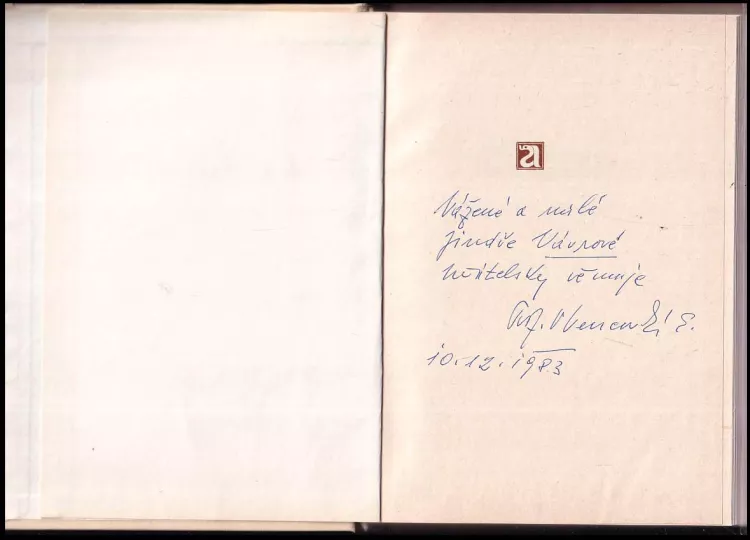 a
Vážené a milé
Jindře Vávrové
přátelsky věnuje
10.12.1983